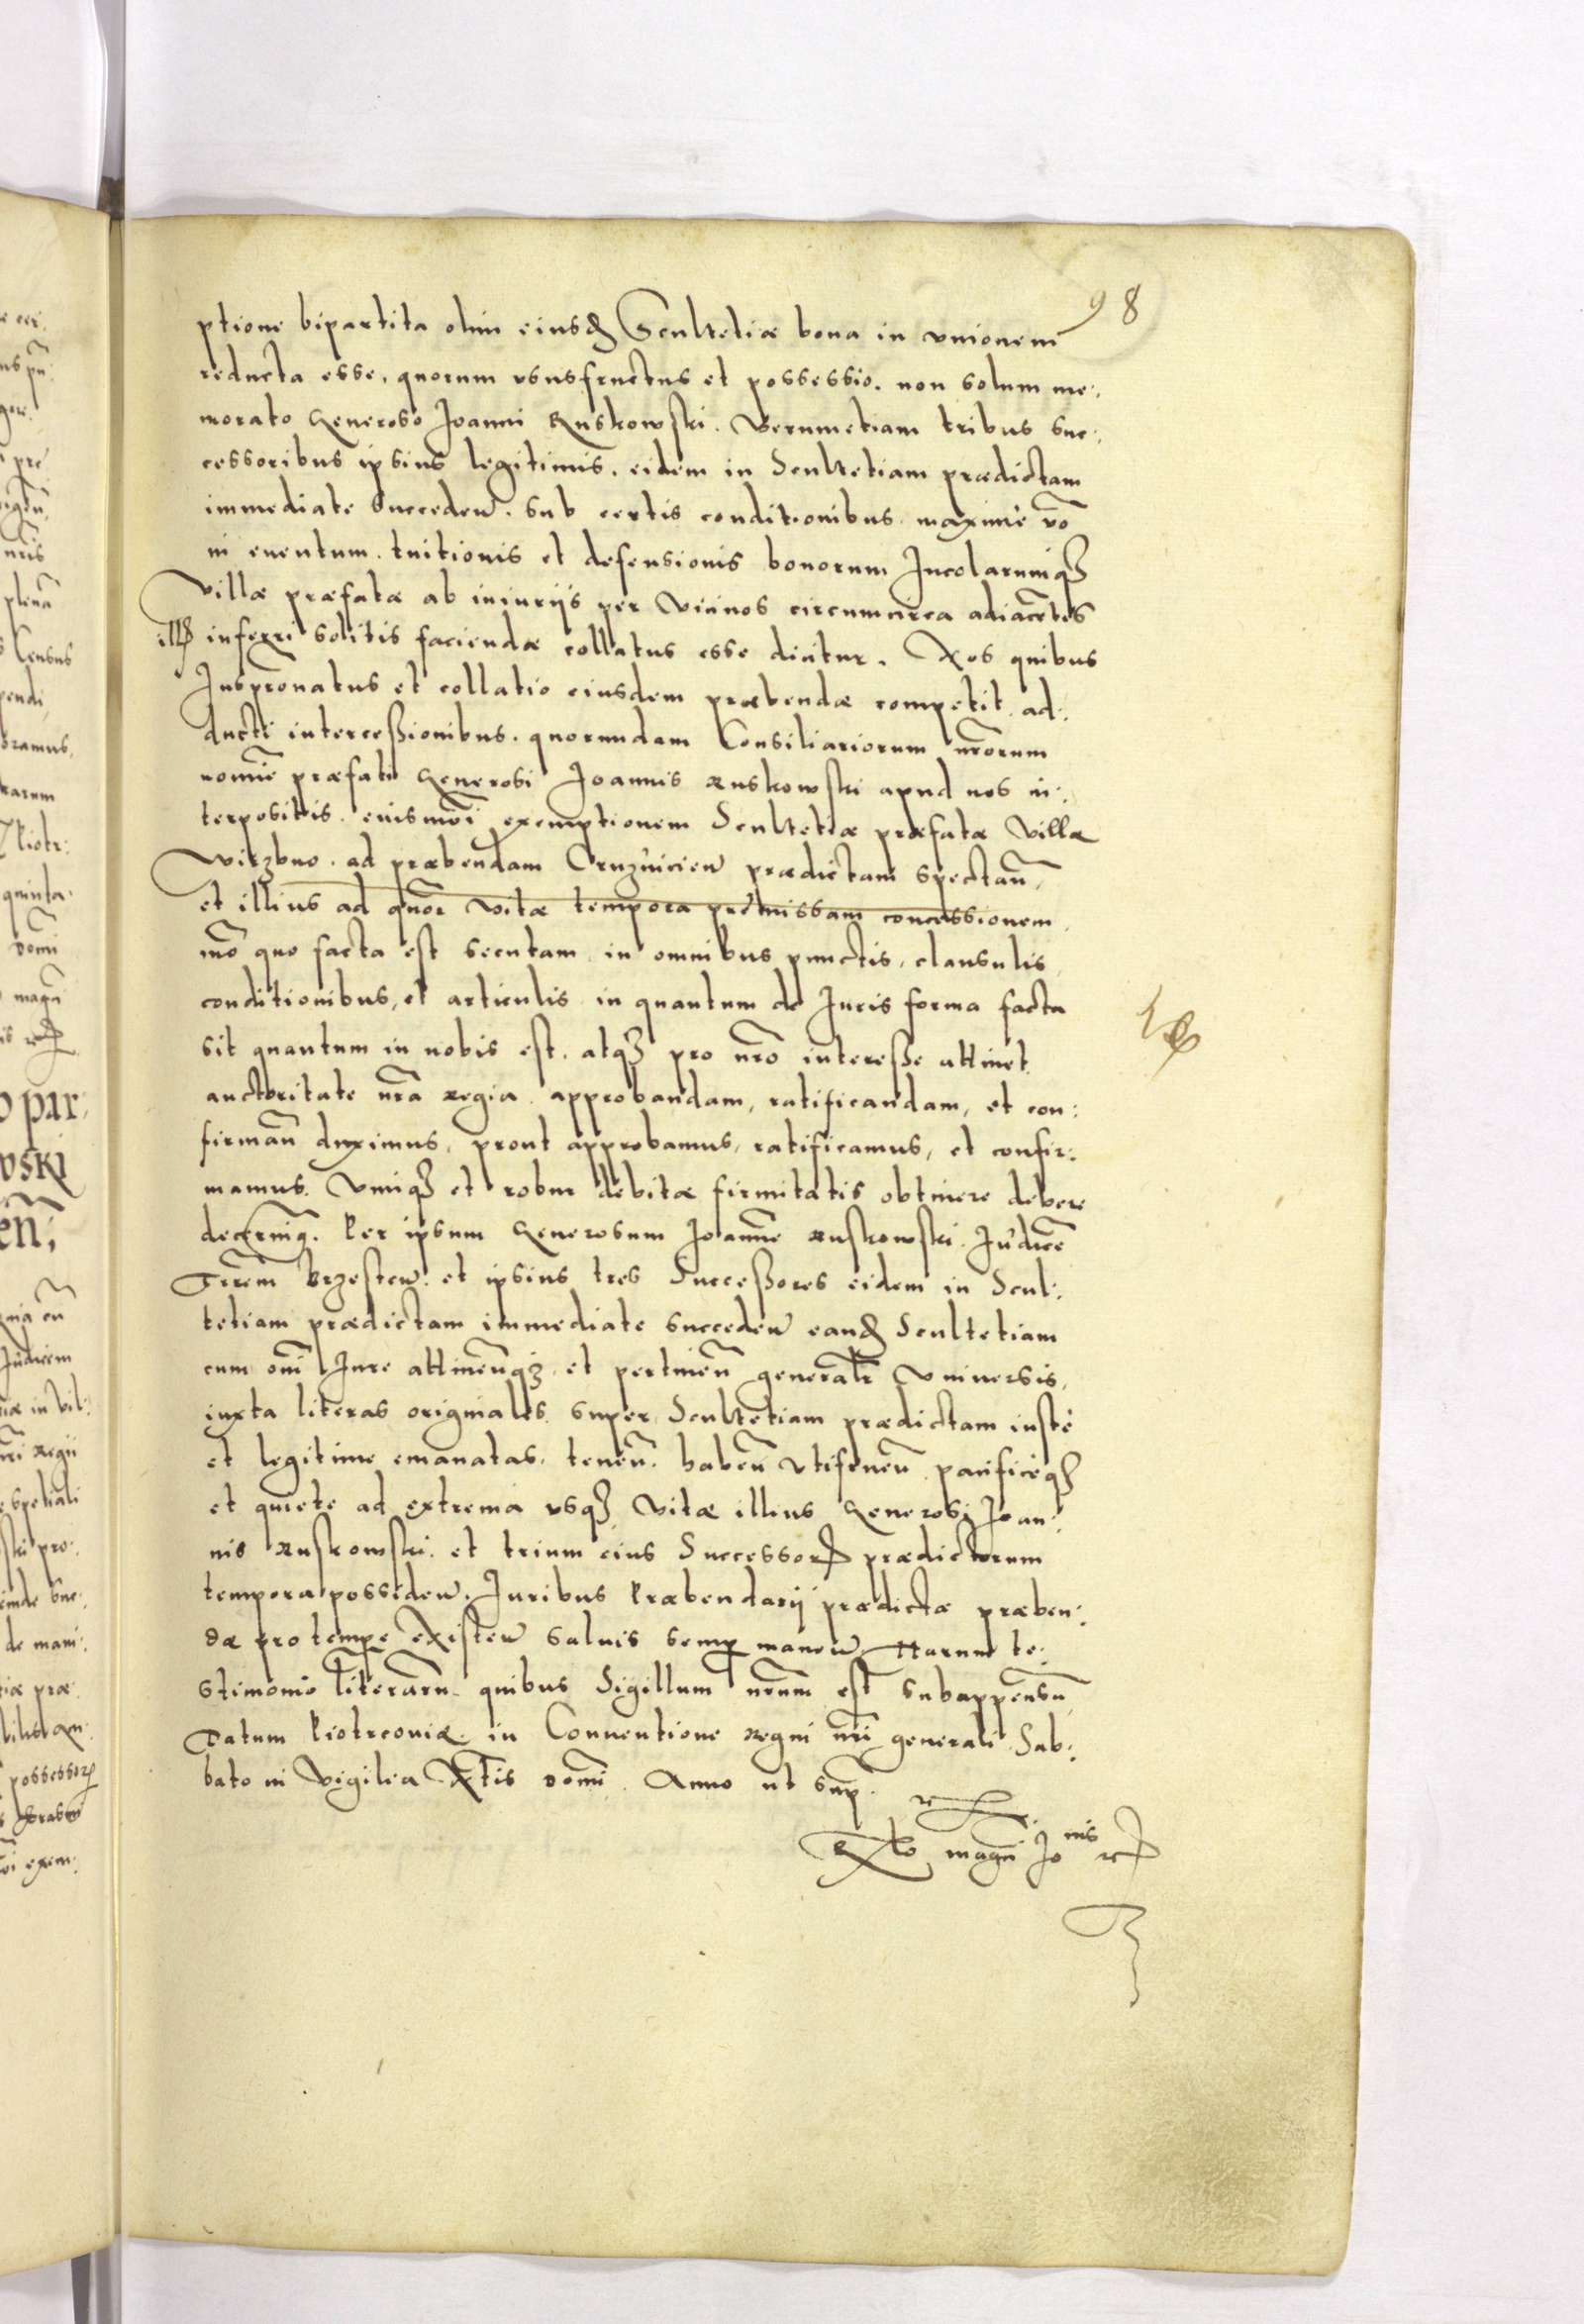 98
ptione bipartita olim eiusd Scultetiæ bona in vnionem
reducta esse, quorum vsusfructus et possessio. non solum me:
morato Generoso Joanni Ruskowski. Verumetiam tribus suc:
cessoribus ipsius legitimis. eidem in Scultetiam prædictam
immediate succeden. sub certis conditionibus. maximè vō
in euentum. tuitionis et defensionis bonorum Incolarumq3
Villæ præfatæ ab iniurijs per vicinos circumcirca adiacētes
inferri solitis faciendæ collatus esse dicitur. Nos quibus
Juspronatus et collatio eiusdem præbendæ competit. ad:
ducti intercessionibus. quorundam Consiliariorum nrōrum
nomīe præfati Generosi Joannis Ruskowski apud nos in:
terpositis. eiusmōi exemptionem Scultetiæ præfatæ Villæ
Wirzbno. ad præbendam Cruzuicien prædictam spectan̄,
et illius ad quōr vitæ tempora prēmissam concessionem,
mō quo facta est secutam in omnibus punctis, clausulis,
conditionibus, et articulis in quantum de Juris forma facta
sit quantum in nobis est. atq3 pro nrō interesse attinet
auctoritate nrā Regia approbandam, ratificandam, et con:
firman̄ duximus, prout approbamus, ratificamus, et confir:
mamus. Vimq3 et robur debitæ firmitatis obtinere debere
decernimq. Per ipsum Generosum Joannē Ruskowski Judicē
Trēm Brzesten. et ipsius tres Successores eidem in Scul:
tetiam prædictam immediate succeden eand Scultetiam
cum omī Jure attinen̄q3. et pertinen̄ generalr Vniuersis,
iuxta literas originales super Scultetiam prædictam iustè
et legitime emanatas. tenen̄. haben̄ vtifruen̄ pacificèq3
et quiete ad extrema vsq3 vitæ illius Generosi Joan:
nis Ruskowski. et trium eius Successor prædictorum
tempora possiden. Juribus Præbendarij prædictæ præben:
dæ pro tempe existen saluis semp manen. Harum te:
stimonio literarū. quibus Sigillum nrūm est subappensū
Datum Piotrcouiæ. in Conuentione Regni nrī generali Sab:
bato in Vigilia Nātis Domī. Anno ut sup.
Rlo magn̄i Jo nis